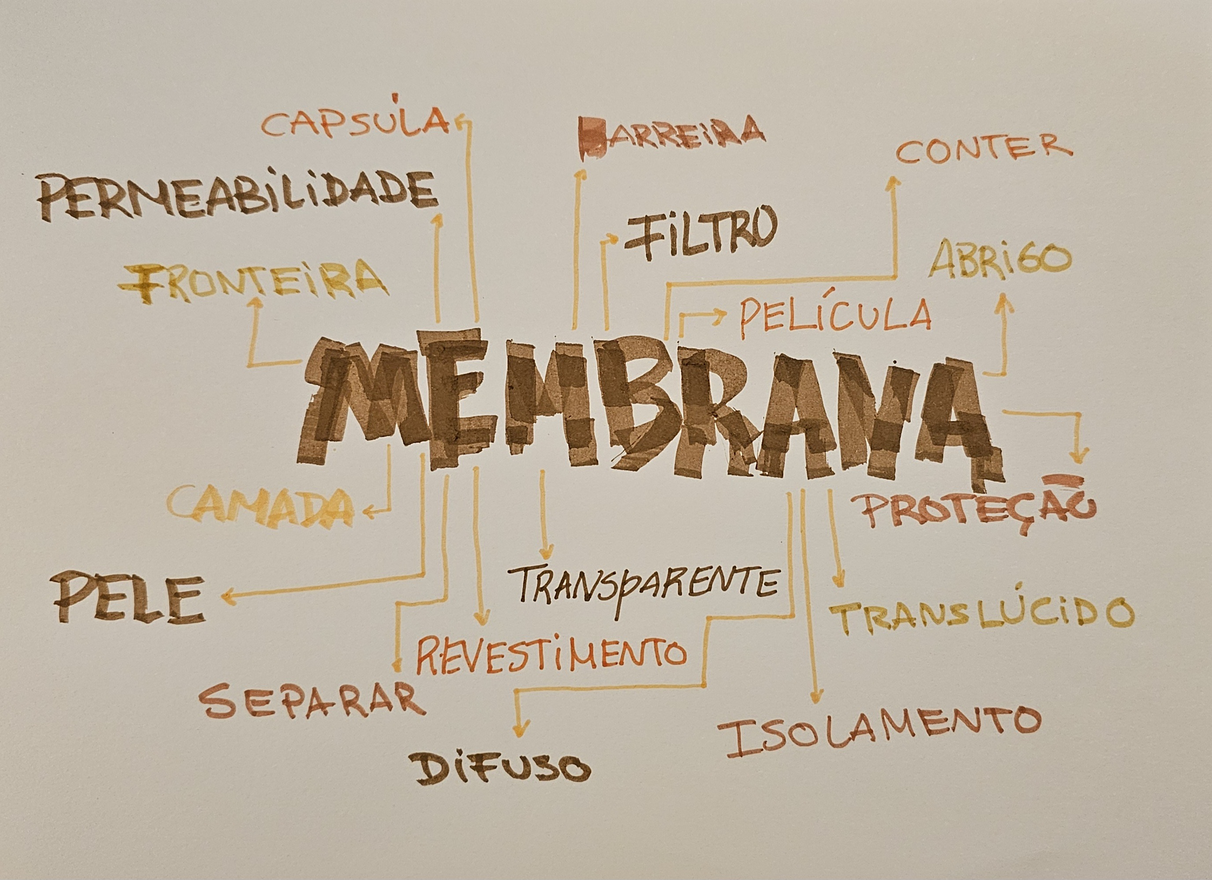 CAPSÚLA
BARREIRA
CONTER
PERMEABILIDADE
FILTRO
FRONTEIRA
ABRIGO
PELÍCULA
MEMBRANA
CAMADA
PROTEÇÃO
PELE
TRANSPARENTE
TRANSLÚCIDO
REVESTIMENTO
SEPARAR
ISOLAMENTO
DIFUSO